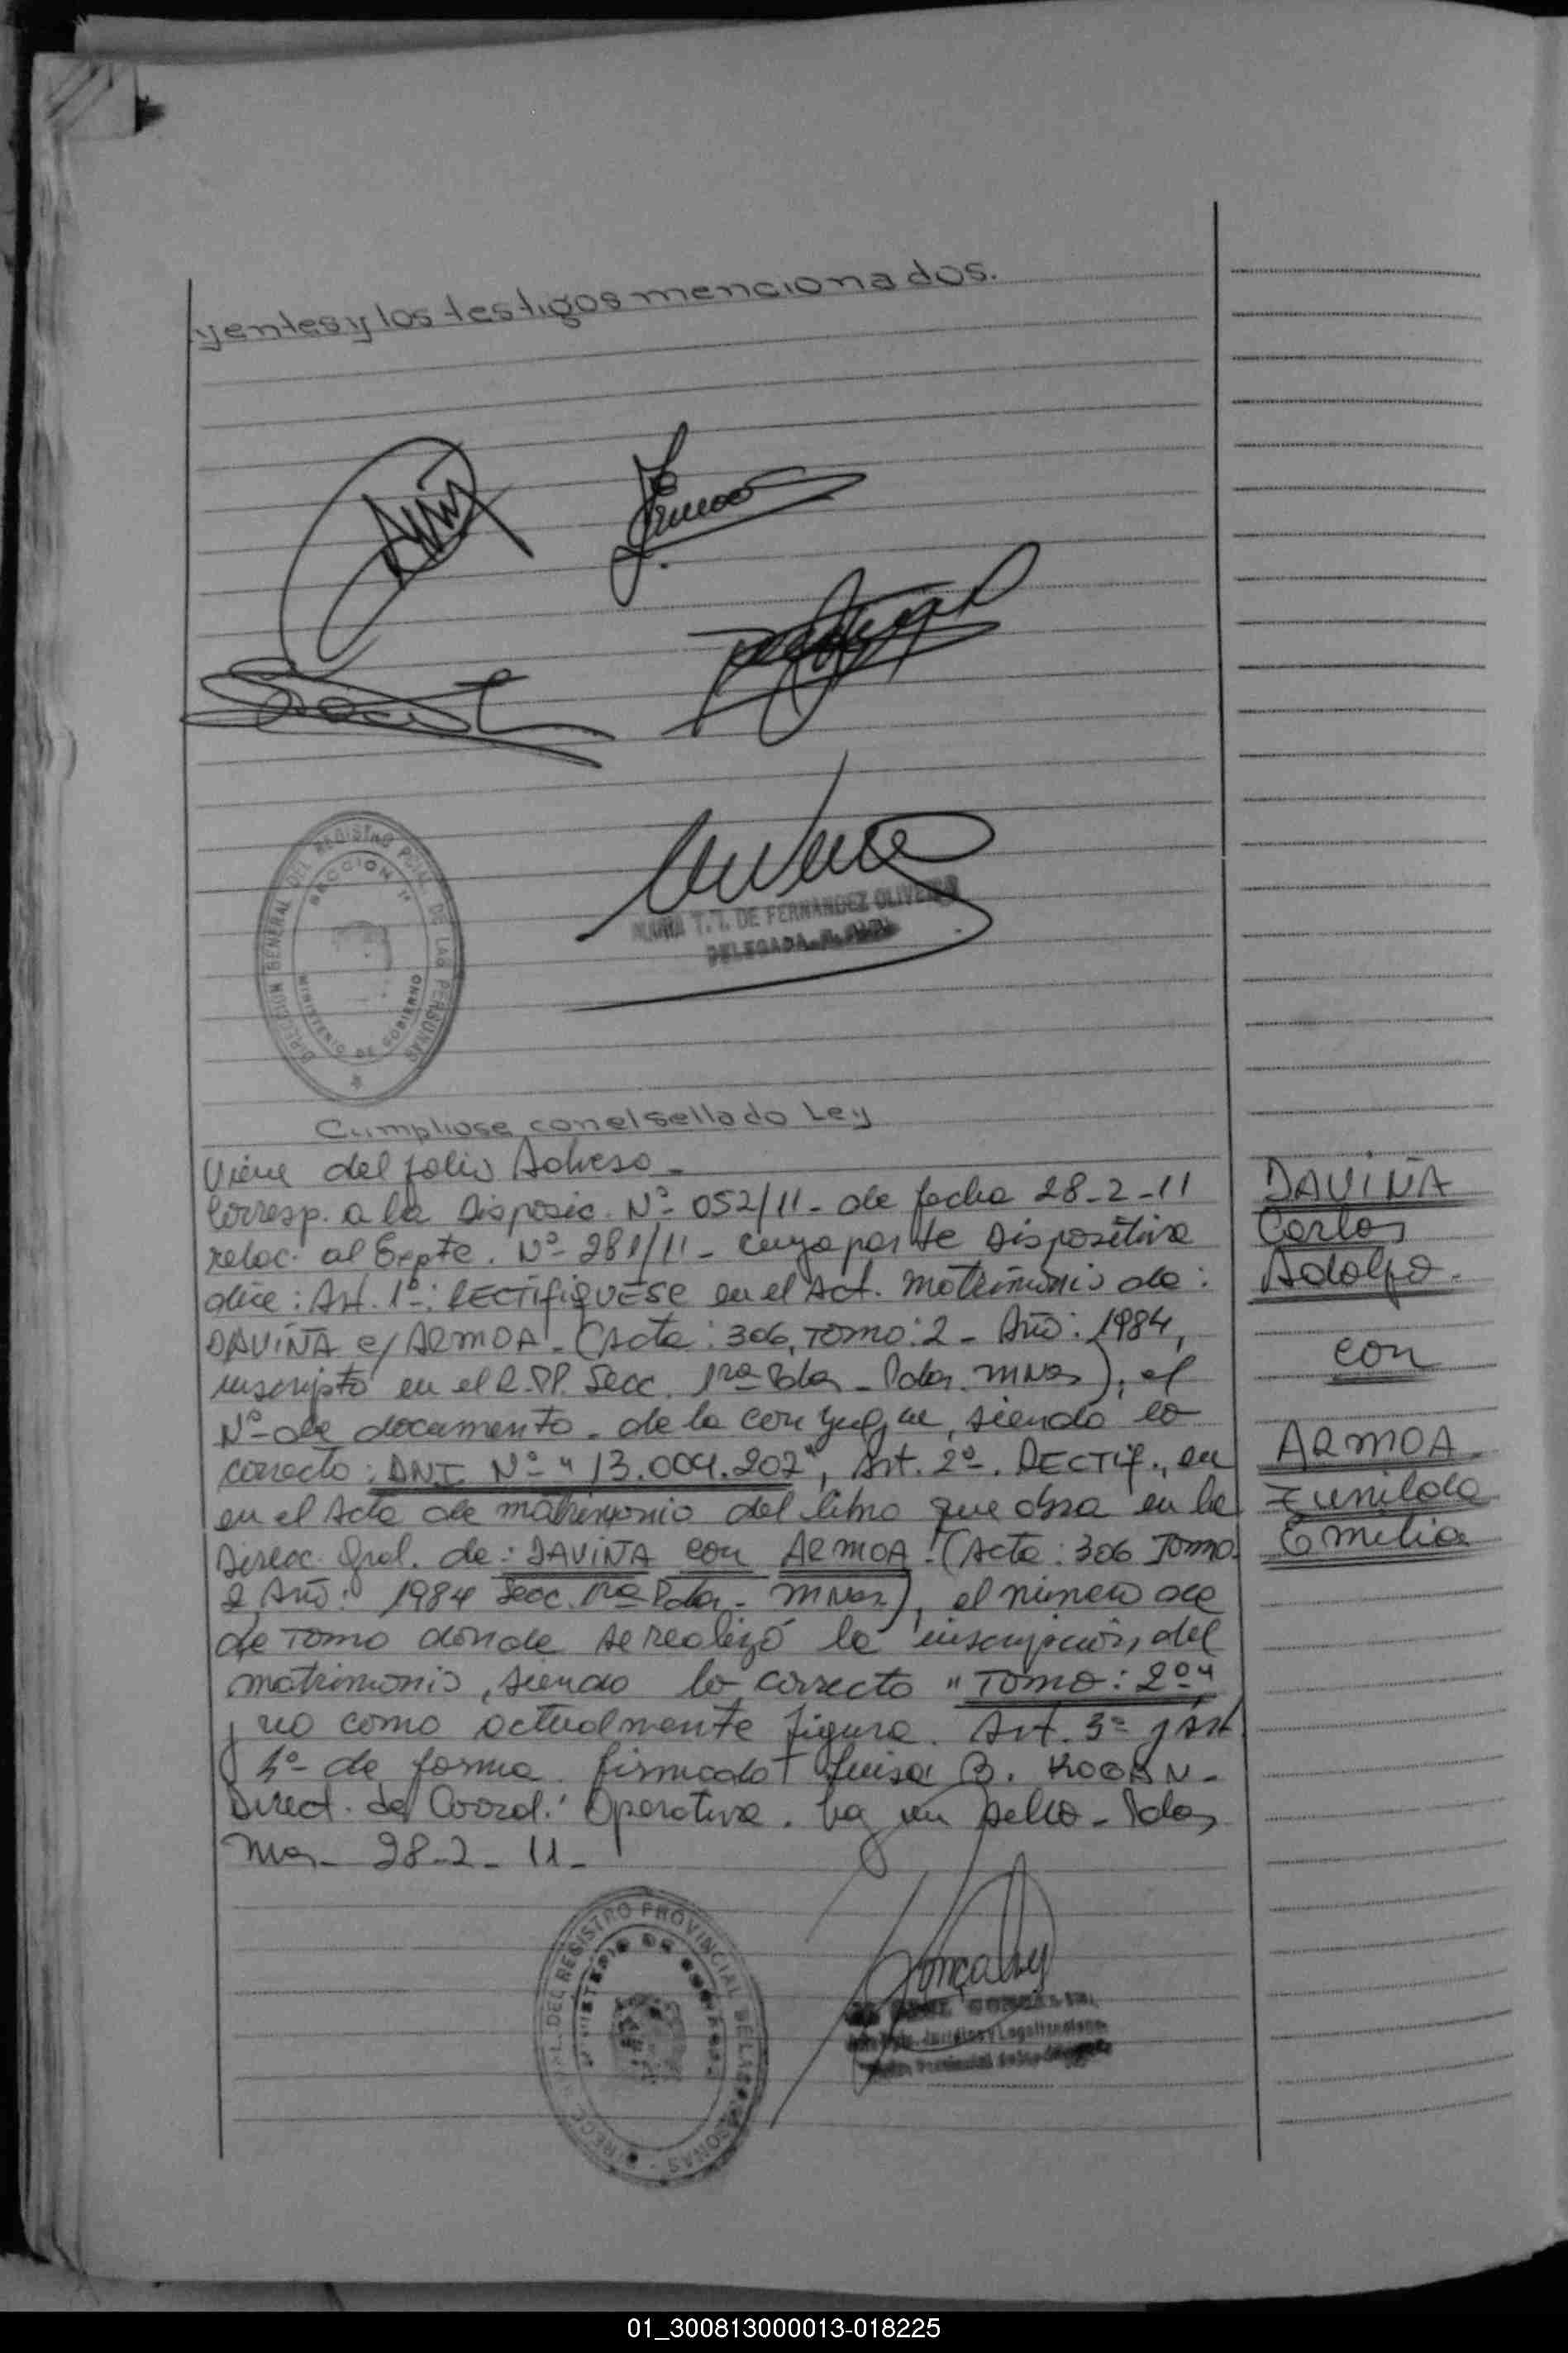 yentes y los testigos mencionados.
DIRECCION GENERAL DEL REGISTRO PCIAL. DE LAS PERSONAS
SECCION 1ª
MINISTERIO DE GOBIERNO
MARIA T. I. DE FERNANDEZ OLIVEIRA
DELEGADA
Cumpliose con el sellado Ley
Viene del folio Adveso -
Corresp. a la Disposic. Nº 052/11 - de fecha 28-2-11
relac. al Expte. Nº 281/11 - cuya parte Dispositiva
dice: Art. 1º: RECTIFIQUESE en el Act. Matrimonio de:
DAVIÑA c/ ARMOA - (Acta: 306, TOMO: 2 - Año: 1984,
inscripto en el R.PP. Secc. 1ra Pdas - Pdas. MNes), el
Nº de documento - de la conyugue, siendo lo
correcto: DNI Nº "13.004.207", Art. 2º. RECTIF., en
en el Acta de matrimonio del libro que obra en la
Direcc. Gral. de: DAVIÑA con ARMOA - (Acta: 306 Tomo
2 Año: 1984 Secc. 1ra Pdas - MNes), el número de
de Tomo donde se realizó la inscripción del
matrimonio, siendo lo correcto "TOMO: 2º"
y no como actualmente figura. Art. 3º y Art
4º de forma. firmado Luisa B. KOGAN -
Direct. de Coord. Operativa. hay un sello - Pdas
Mnes - 28-2-11 -
DAVIÑA
Carlos
Adolfo.
con
ARMOA
Zunilda
Emilia
DIRECC. GRAL. DEL REGISTRO PROVINCIAL DE LAS PERSONAS
MINISTERIO DE GOBIERNO
Jurídica y Legalizaciones
01_300813000013-018225